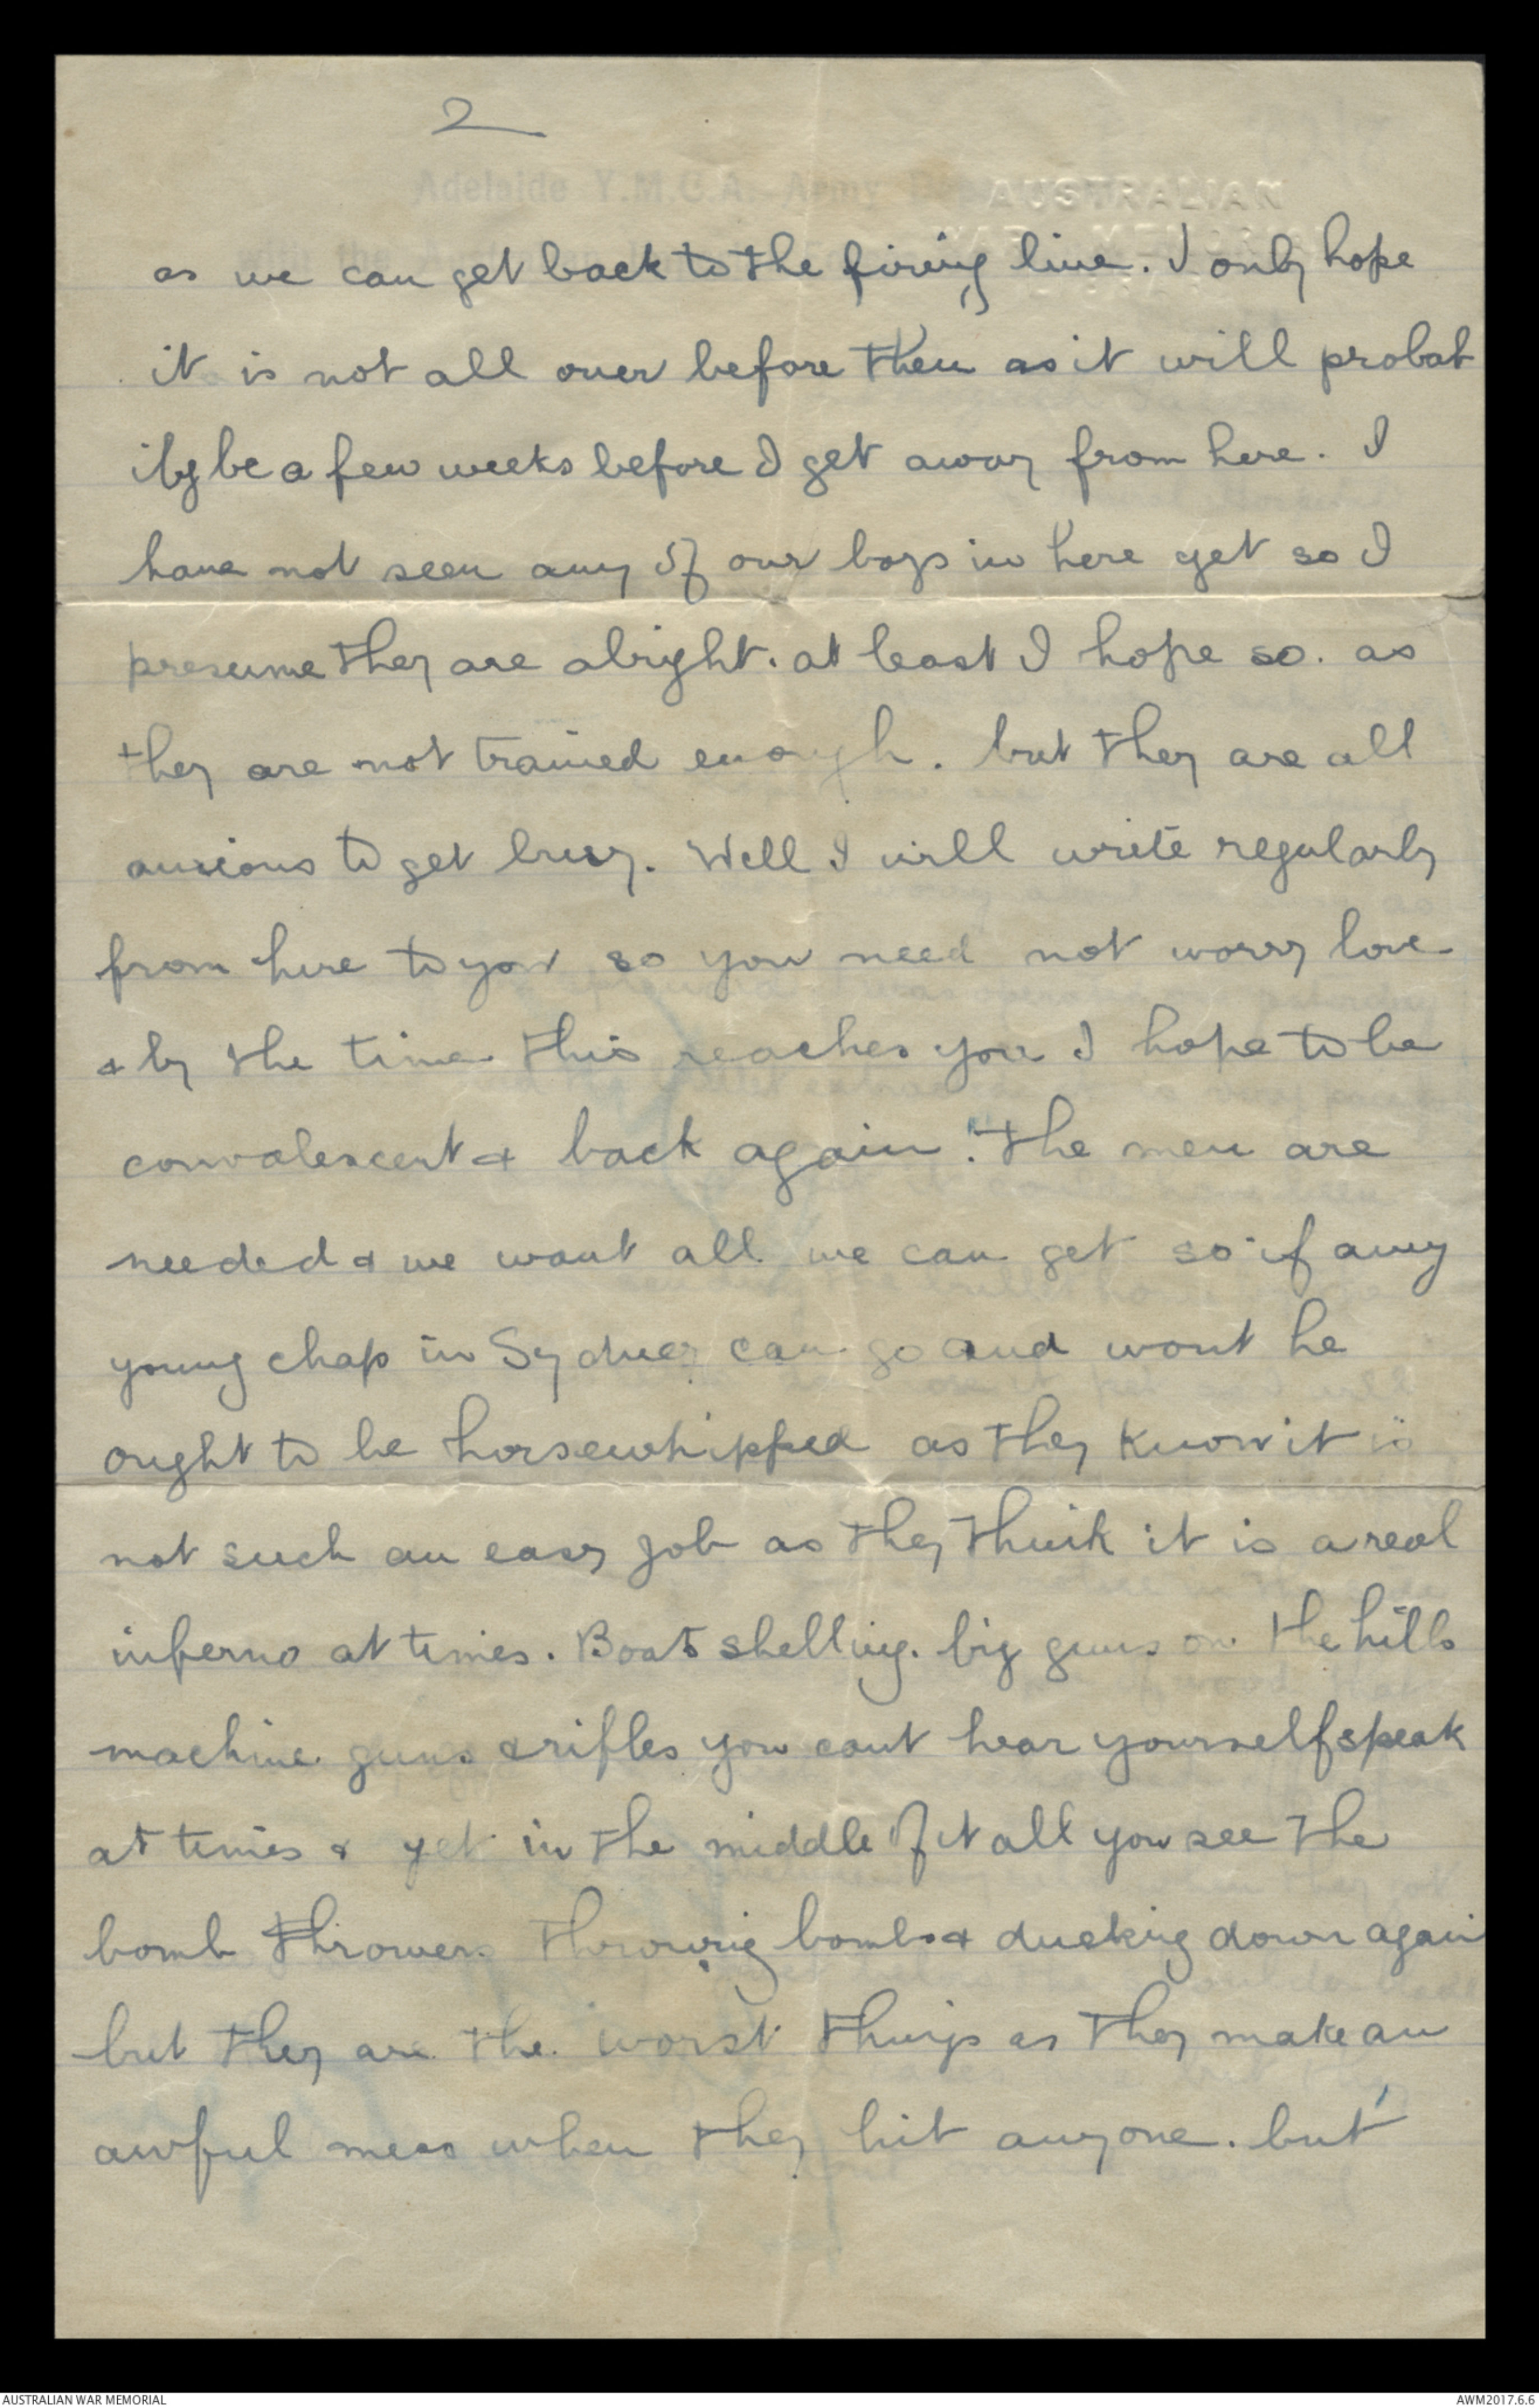 2
Adelaide Y.M.C.A. Army
AUSTRALIAN
as we can get back to the firing line. I only hope
it is not all over before then as it will probab
ily be a few weeks before I get away from here. I
have not seen any of our boys in here yet so I
presume they are alright. at least I hope so. as
they are not trained enough. but they are all
anxious to get busy. Well I will write regularly
from here to you so you need not worry love
& by the time this reaches you I hope to be
convalescent & back again. The men are
needed & we want all we can get so if any
young chap in Sydney can go and wont he
ought to be horsewhipped as they know it is
not such an easy job as they think it is a real
inferno at times. Boats shelling. big guns on the hills
machine guns & rifles you cant hear yourself speak
at times & yet in the middle of it all you see the
bomb throwers throwing bombs & ducking down again
but they are the worst things as they make an
awful mess when they hit anyone. but
AUSTRALIAN WAR MEMORIAL
AWM2017.6.6